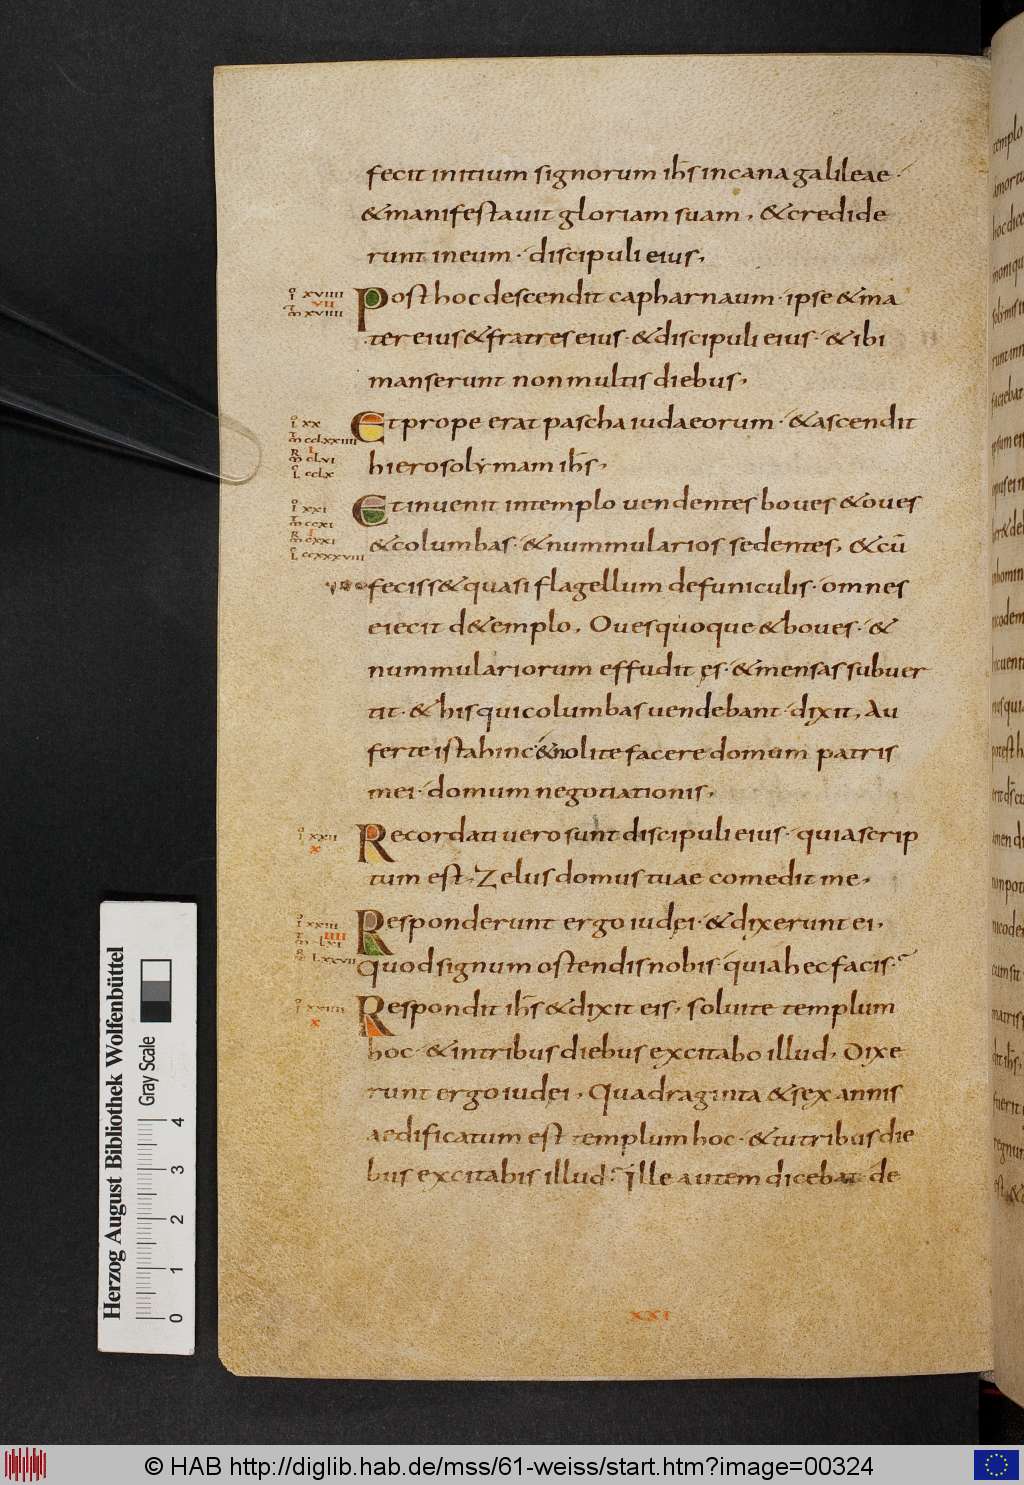 fecit initium signorum ih̅s incana galileae ·
&manifestauit gloriam suam, &credide
runt ineum · discipuli eius,
Post hoc descendit capharnaum · ipse &ma
ter eius &fratres eius · &discipuli eius · & ibi
manserunt non multis diebus,
Et prope erat pascha iudaeorum · &ascendit
hierosolẏmam ih̅s,
Et inuenit intemplo uendentes boues &oues
&columbas · &nummularios sedentes, &cū
feciss& quasi flagellum defuniculis · omnes
eiecit d&emplo, Oues quoque &boues · &
nummulariorum effudit ęs · &mensas subuer
tit · & his qui columbas uendebant · dixit, Au
ferte ista hinc · &nolite facere domum patris
mei · domum negotiationis,
Recordati uero sunt discipuli eius · quia scrip
tum est, Zelus domus tuae comedit me,
Responderunt ergo iudęi · &dixerunt ei,
quod signum ostendis nobis · quia hec facis ·
Respondit ih̅s &dixit eis, soluite templum
hoc · &intribus diebus excitabo illud, Dixe
runt ergo iudęi, Quadraginta &sex annis
aedificatum est templum hoc · &tu tribus die
bus excitabis illud · Ille autem dicebat de
xviiii
vii
xviiii
xx
cclxxiiii
i
clvi
cclx
xxi
ccxi
i
cxxi
ccxxxviii
xxii
x
xxiii
iiii
lxi
lxxvii
xxiiii
x
xxi
Herzog August Bibliothek Wolfenbüttel
Gray Scale
0 1 2 3 4
© HAB http://diglib.hab.de/mss/61-weiss/start.htm?image=00324